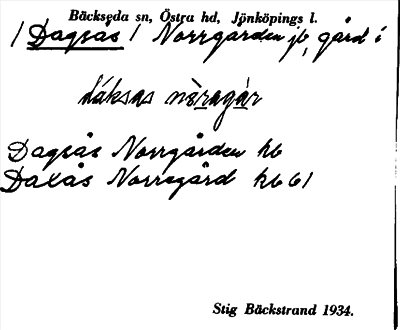 Bäckseda sn, Östra hd, Jönköpings l.
/ Dagsås / Norrgården jb, gård i
dáksas nèragår
Dagsås Norrgården kb
Daxås Norregård kb 61
Stig Bäckstrand 1934.